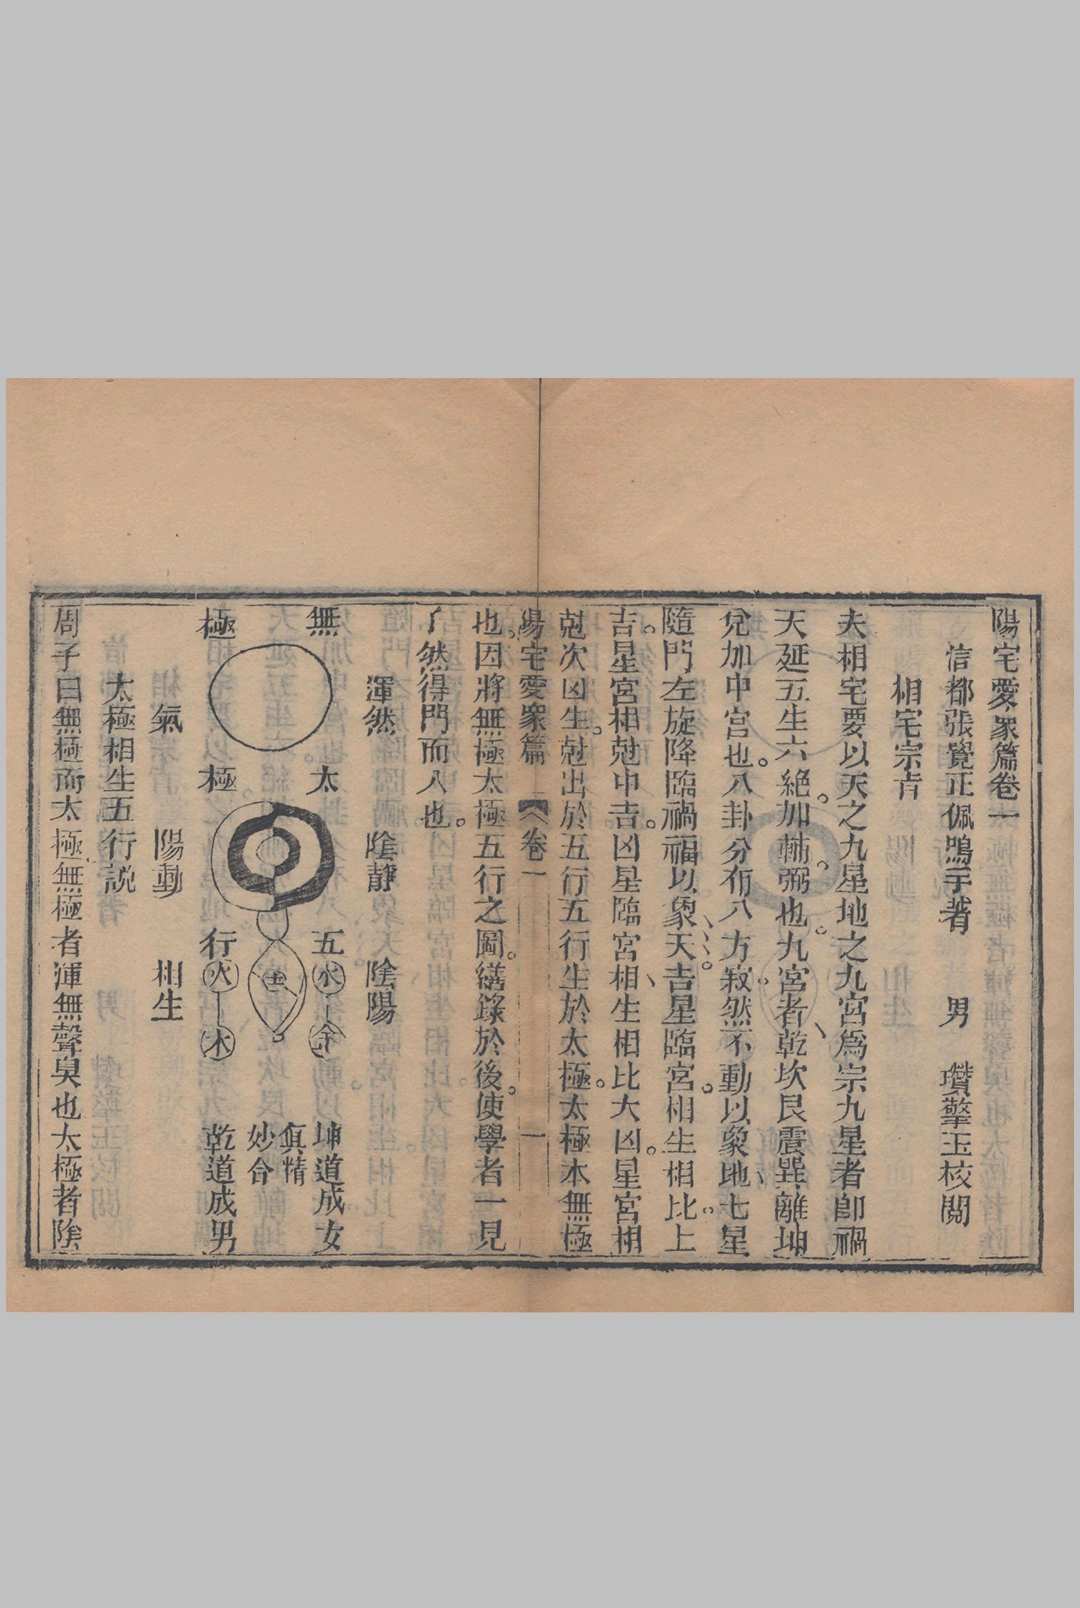 陽宅愛衆篇卷一
信都張覺正佩鳴子著　男　瓚擎玉校閱
相宅宗㫖
夫相宅要以天之九星地之九宮爲宗九星者卽禍
天延五生六絶加輔弼也。九宮者乾坎艮震巽離坤
兌加中宮也。八卦分布八方寂然不動以象地七星
隨門左旋降臨禍福以象天。吉星臨宮。相生相比。上
吉。星宮相尅中吉。凶星臨宮相生相比大凶。星宮相
尅次凶。生尅出於五行五行生於太極。太極本無極
陽宅愛衆篇　卷一　一
也。因將無極太極五行之圖。繕錄於後。使學者一見
了然得門而入也。
渾然　陰靜　陰陽
無　太　五　水　金　坤道成女
土　眞精
妙合
極　極　行　火　木　乾道成男
氣　陽動　相生
太極相生五行説
周子曰無極而太極無極者渾無聲臭也太極者陰